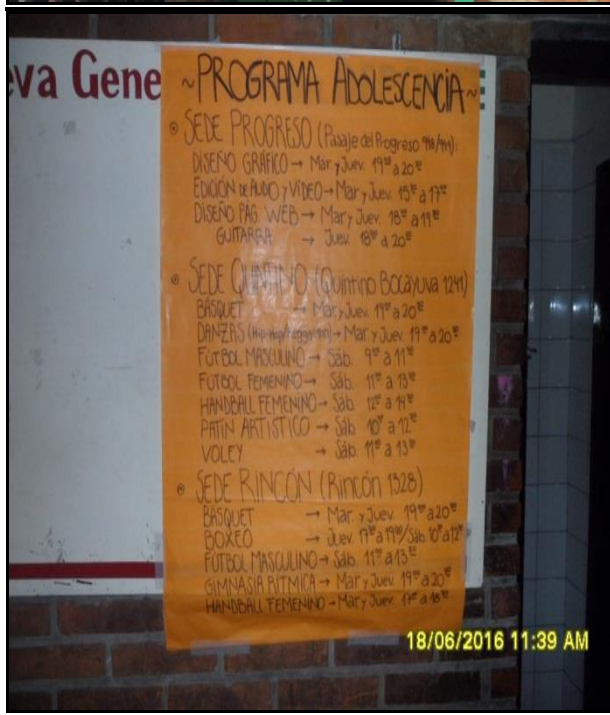 eva Gene
~PROGRAMA ADOLESCENCIA~
• SEDE PROGRESO (Pasaje del Progreso
DISEÑO GRÁFICO → Mar. y Juev. 19⁰⁰ a 20⁰⁰
EDICIÓN DE AUDIO Y VÍDEO → Mar y Juev. 15⁰⁰ a 17⁰⁰
DISEÑO PÁG. WEB → Mar y Juev. 18⁰⁰ a 19⁰⁰
GUITARRA → Juev. 18⁰⁰ a 20⁰⁰
• SEDE QUINTINO (Quintino Bocayuva 1241)
BÁSQUET → Mar. y Juev. 19⁰⁰ a 20⁰⁰
DANZAS (Hip-Hop/Reggaeton) → Mar. y Juev. 19⁰⁰ a 20⁰⁰
FÚTBOL MASCULINO → Sáb. 9⁰⁰ a 11⁰⁰
FÚTBOL FEMENINO → Sáb. 11⁰⁰ a 13⁰⁰
HANDBALL FEMENINO → Sáb. 12⁰⁰ a 14⁰⁰
PATÍN ARTÍSTICO → Sáb. 10⁰⁰ a 12⁰⁰
VOLEY → Sáb. 11⁰⁰ a 13⁰⁰
• SEDE RINCÓN (Rincón 1328)
BÁSQUET → Mar. y Juev. 19⁰⁰ a 20⁰⁰
BOXEO → Juev. 17⁰⁰ a 19⁰⁰/Sáb 10⁰⁰ a 12⁰⁰
FÚTBOL MASCULINO → Sáb. 11⁰⁰ a 13⁰⁰
GIMNASIA RÍTMICA → Mar y Juev. 19⁰⁰ a 20⁰⁰
HANDBALL FEMENINO → Mar y Juev. 17⁰⁰ a 18⁰⁰
18/06/2016 11:39 AM